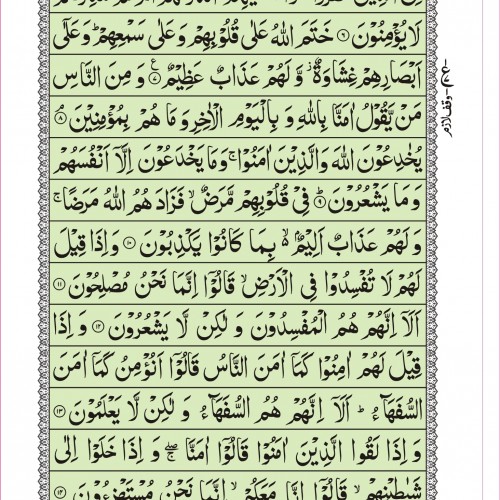 لَا يُؤْمِنُوْنَ ۶ خَتَمَ اللّٰهُ عَلٰى قُلُوْبِهِمْ وَ عَلٰى سَمْعِهِمْ ؕ وَ عَلٰۤى
اَبْصَارِهِمْ غِشَاوَةٌ ۫ وَّ لَهُمْ عَذَابٌ عَظِیْمٌ ۷ وَ مِنَ النَّاسِ
مَنْ یَّقُوْلُ اٰمَنَّا بِاللّٰهِ وَ بِالْیَوْمِ الْاٰخِرِ وَ مَا هُمْ بِمُؤْمِنِیْنَ ۘ ۸
یُخٰدِعُوْنَ اللّٰهَ وَ الَّذِیْنَ اٰمَنُوْا ۚ وَ مَا یَخْدَعُوْنَ اِلَّاۤ اَنْفُسَهُمْ
وَ مَا یَشْعُرُوْنَ ؕ ۹ فِیْ قُلُوْبِهِمْ مَّرَضٌ ۙ فَزَادَهُمُ اللّٰهُ مَرَضًا ۚ
وَ لَهُمْ عَذَابٌ اَلِیْمٌۢ ۙ بِمَا كَانُوْا یَكْذِبُوْنَ ۱۰ وَ اِذَا قِیْلَ
لَهُمْ لَا تُفْسِدُوْا فِی الْاَرْضِ ۙ قَالُوْۤا اِنَّمَا نَحْنُ مُصْلِحُوْنَ ۱۱
اَلَاۤ اِنَّهُمْ هُمُ الْمُفْسِدُوْنَ وَ لٰكِنْ لَّا یَشْعُرُوْنَ ۱۲ وَ اِذَا
قِیْلَ لَهُمْ اٰمِنُوْا كَمَاۤ اٰمَنَ النَّاسُ قَالُوْۤا اَنُؤْمِنُ كَمَاۤ اٰمَنَ
السُّفَهَآءُ ؕ اَلَاۤ اِنَّهُمْ هُمُ السُّفَهَآءُ وَ لٰكِنْ لَّا یَعْلَمُوْنَ ۱۳
وَ اِذَا لَقُوا الَّذِیْنَ اٰمَنُوْا قَالُوْۤا اٰمَنَّا ۖۚ وَ اِذَا خَلَوْا اِلٰى
شَیٰطِیْنِهِمْ ۙ قَالُوْۤا اِنَّا مَعَكُمْ ۙ اِنَّمَا نَحْنُ مُسْتَهْزِءُوْنَ ۱۴
وقف لازم